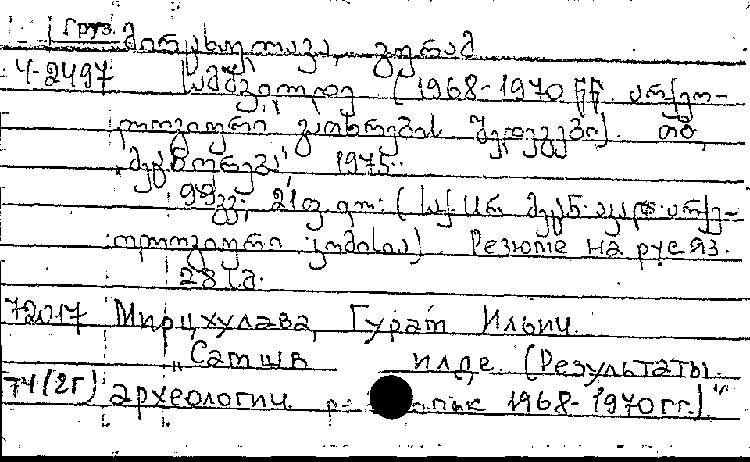 Груз. მირცხულავა, გურამ
4-2497 სამშვილდე (1968-1970 წწ. არქეო-
ლოგიური გათხრების შედეგები). თბ.,
"მეცნიერება", 1975.
99 გვ.; 21 ფ. ილ. (საქ. სსრ მეცნ. აკად. არქე-
ოლოგიური კომისია) Резюме на рус яз.
28 სმ.
72017 Мирцхулава, Гурам Ильич.
"Самшв илде. (Результаты
74(2Г) археологич. 1968-1970 гг.)."